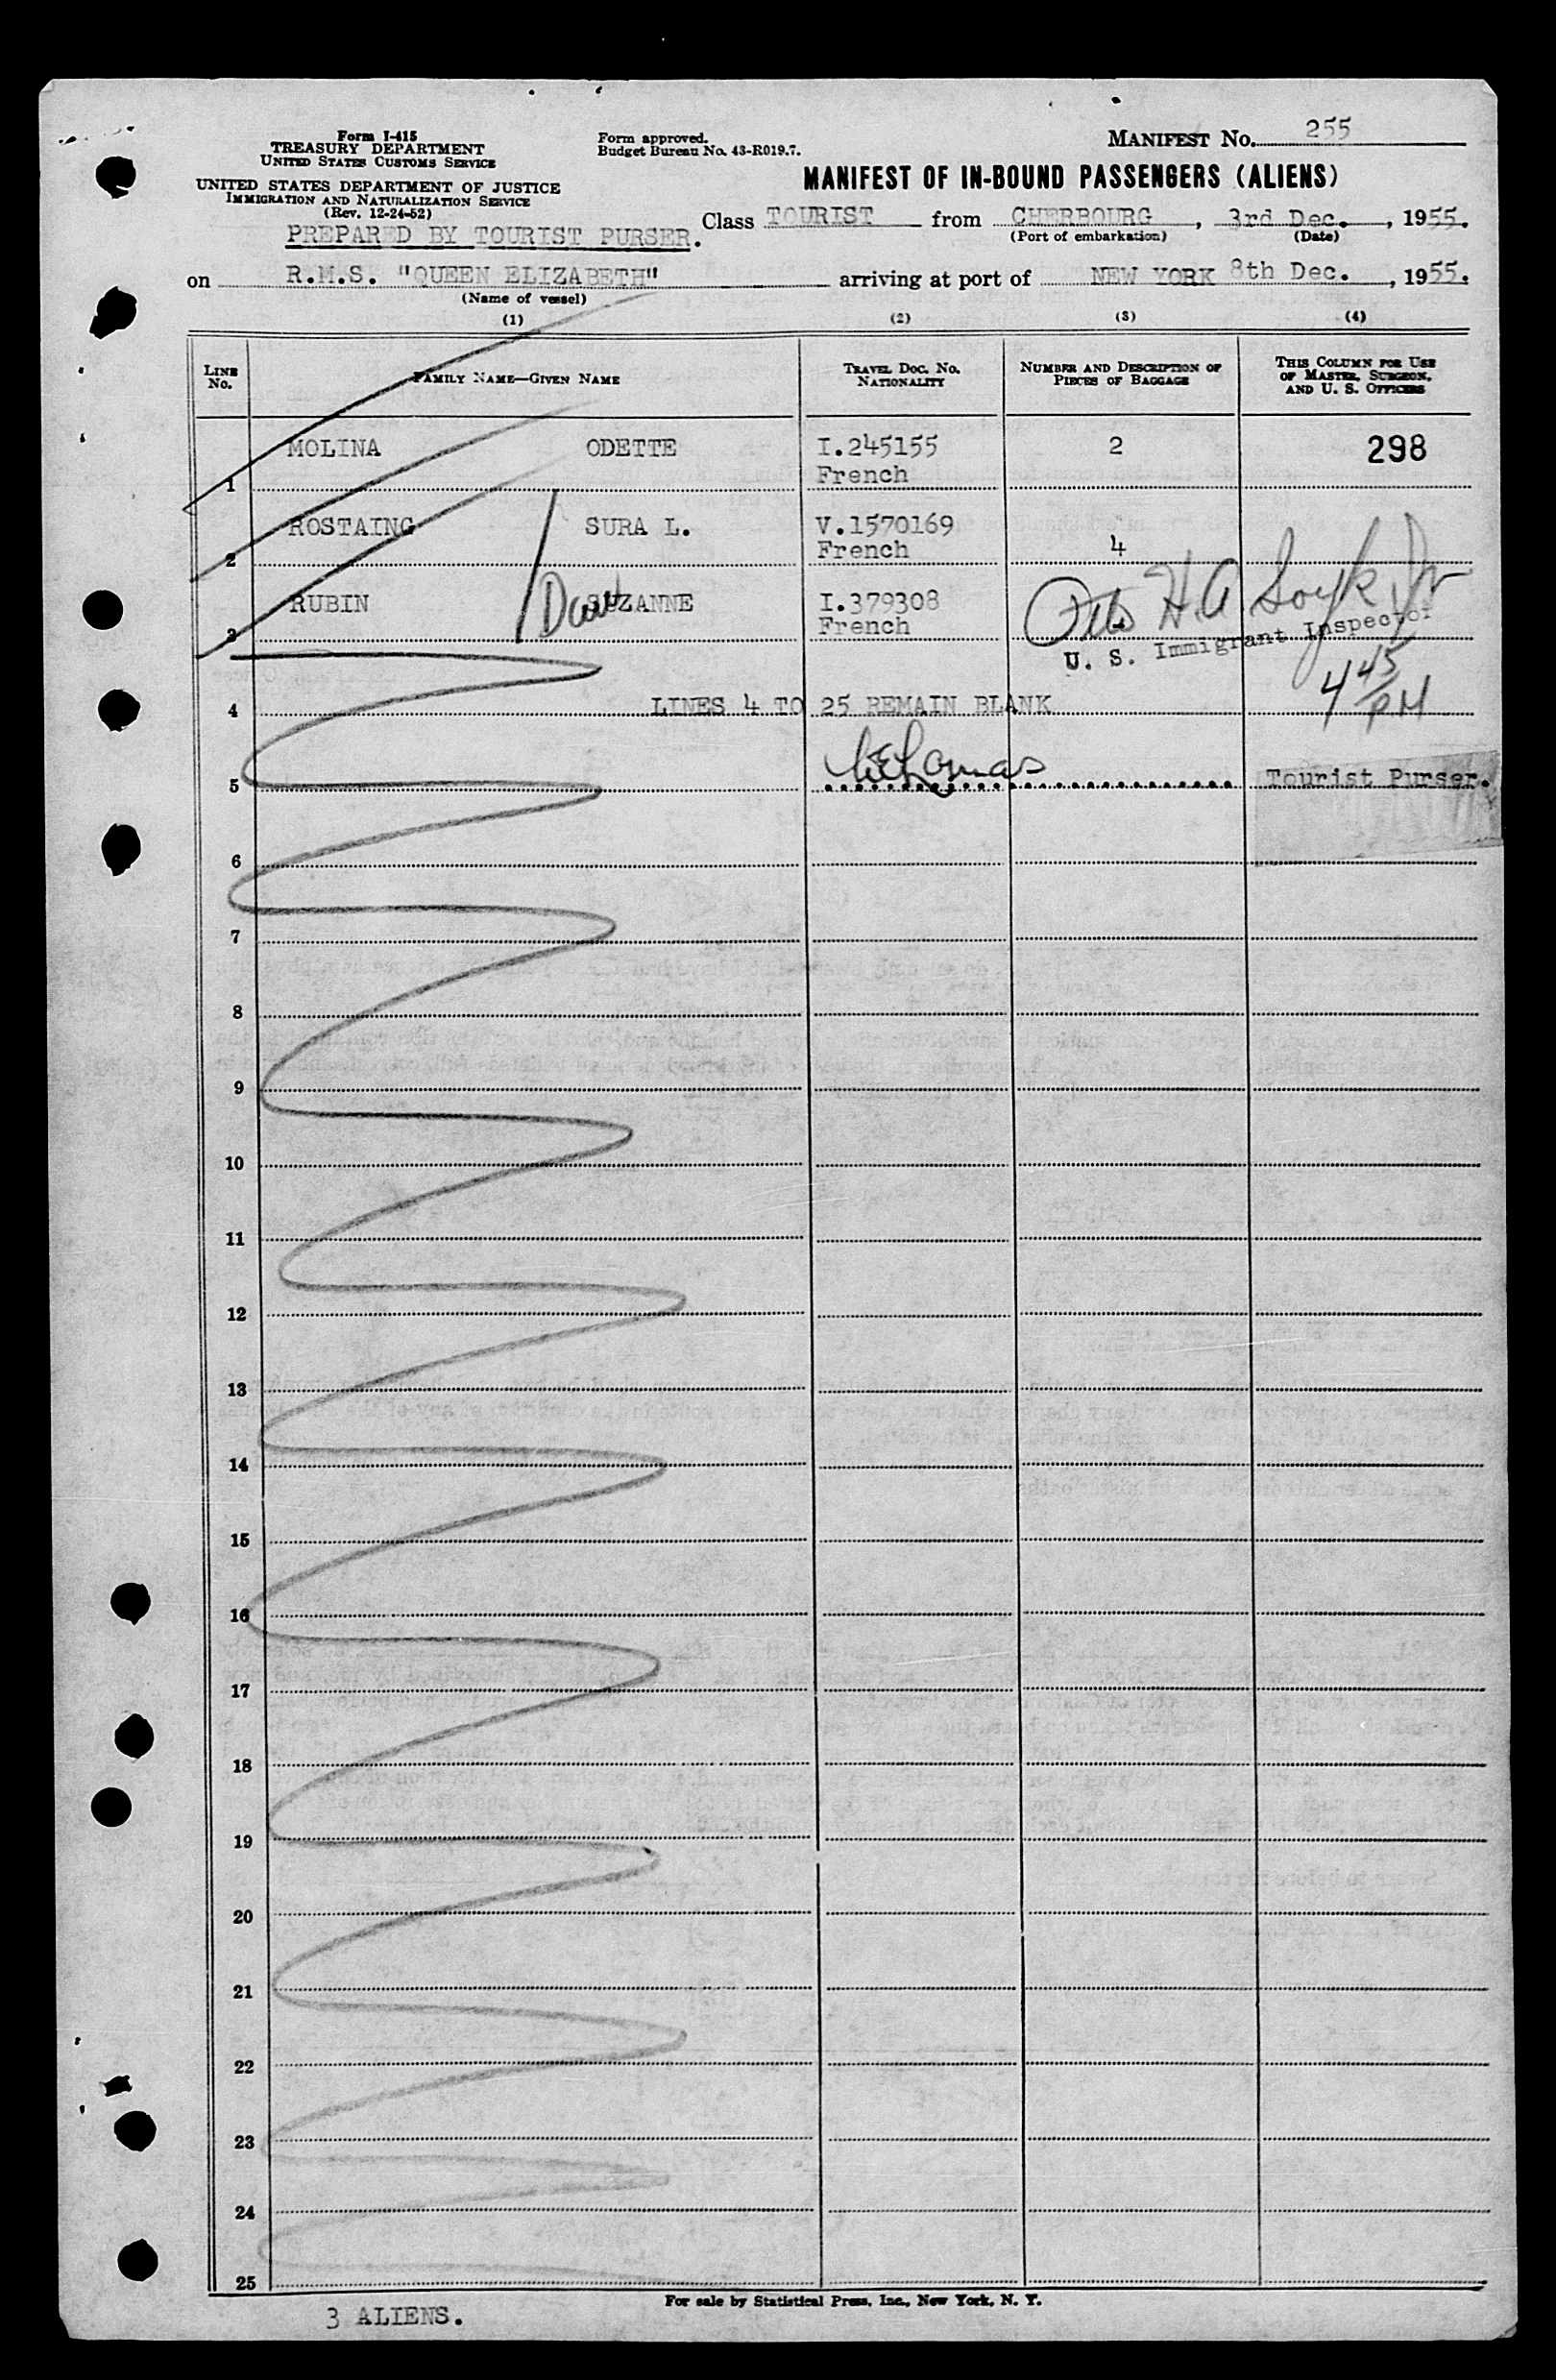 Form I-415
TREASURY DEPARTMENT
UNITED STATES CUSTOMS SERVICE
UNITED STATES DEPARTMENT OF JUSTICE
IMMIGRATION AND NATURALIZATION SERVICE
(Rev. 12-24-52)
PREPARED BY TOURIST PURSER.
Form approved.
Budget Bureau No. 43-R019.7.
MANIFEST No. 255
MANIFEST OF IN-BOUND PASSENGERS (ALIENS)
Class TOURIST from CHERBOURG, 3rd Dec., 1955.
(Port of embarkation) (Date)
on R.M.S. "QUEEN ELIZABETH" arriving at port of NEW YORK 8th Dec., 1955.
(Name of vessel)
(1) (2) (3) (4)
LINE No. FAMILY NAME—GIVEN NAME TRAVEL DOC. NO. NATIONALITY NUMBER AND DESCRIPTION OF PIECES OF BAGGAGE THIS COLUMN FOR USE OF MASTER, SURGEON, AND U. S. OFFICERS
MOLINA ODETTE I.245155 2 298
1 French
ROSTAING SURA L. V.1570169
2 French 4
RUBIN SUZANNE I.379308
3 French
H A Soyk Jr
U. S. Immigrant Inspector
4 45 PM
4 LINES 4 TO 25 REMAIN BLANK
5 Tourist Purser.
6
7
8
9
10
11
12
13
14
15
16
17
18
19
20
21
22
23
24
25
For sale by Statistical Press, Inc., New York, N. Y.
3 ALIENS.